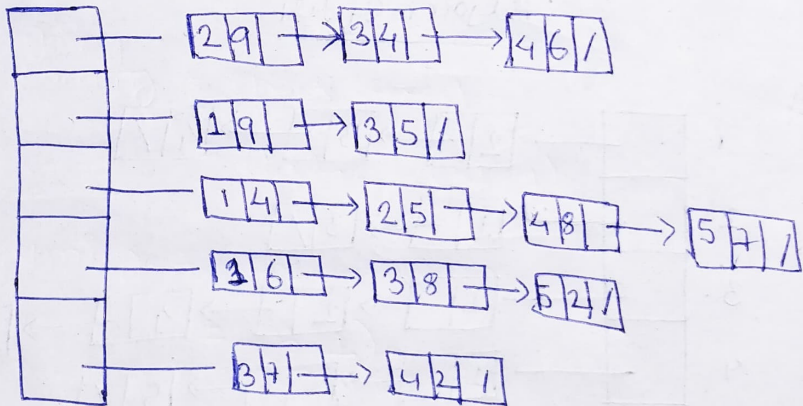 2 9 3 4 4 6 /
1 9 3 5 /
1 4 2 5 4 8 5 7 /
1 6 3 8 5 2 /
3 7 4 2 /